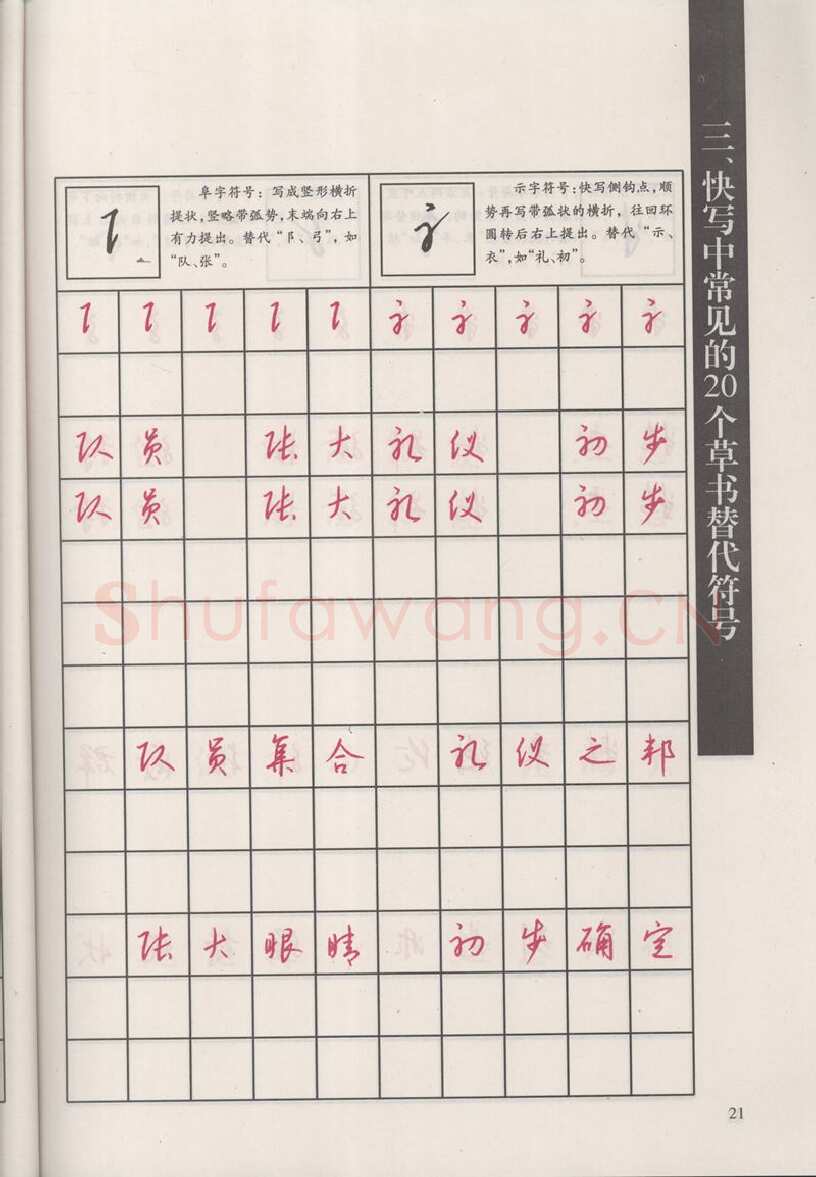 三、快写中常见的20个草书替代符号
阜字符号：写成竖形横折
提状，竖略带弧势，末端向右上
有力提出。替代“阝、弓”，如
“队、张”。
示字符号：快写侧钩点，顺
势再写带弧状的横折，往回环
圆转后右上提出。替代“示、
衣”，如“礼、初”。
队员 张大礼仪 初步
队员 张大礼仪 初步
Shufawang.CN
队员集合 礼仪之邦
张大眼睛 初步确定
21